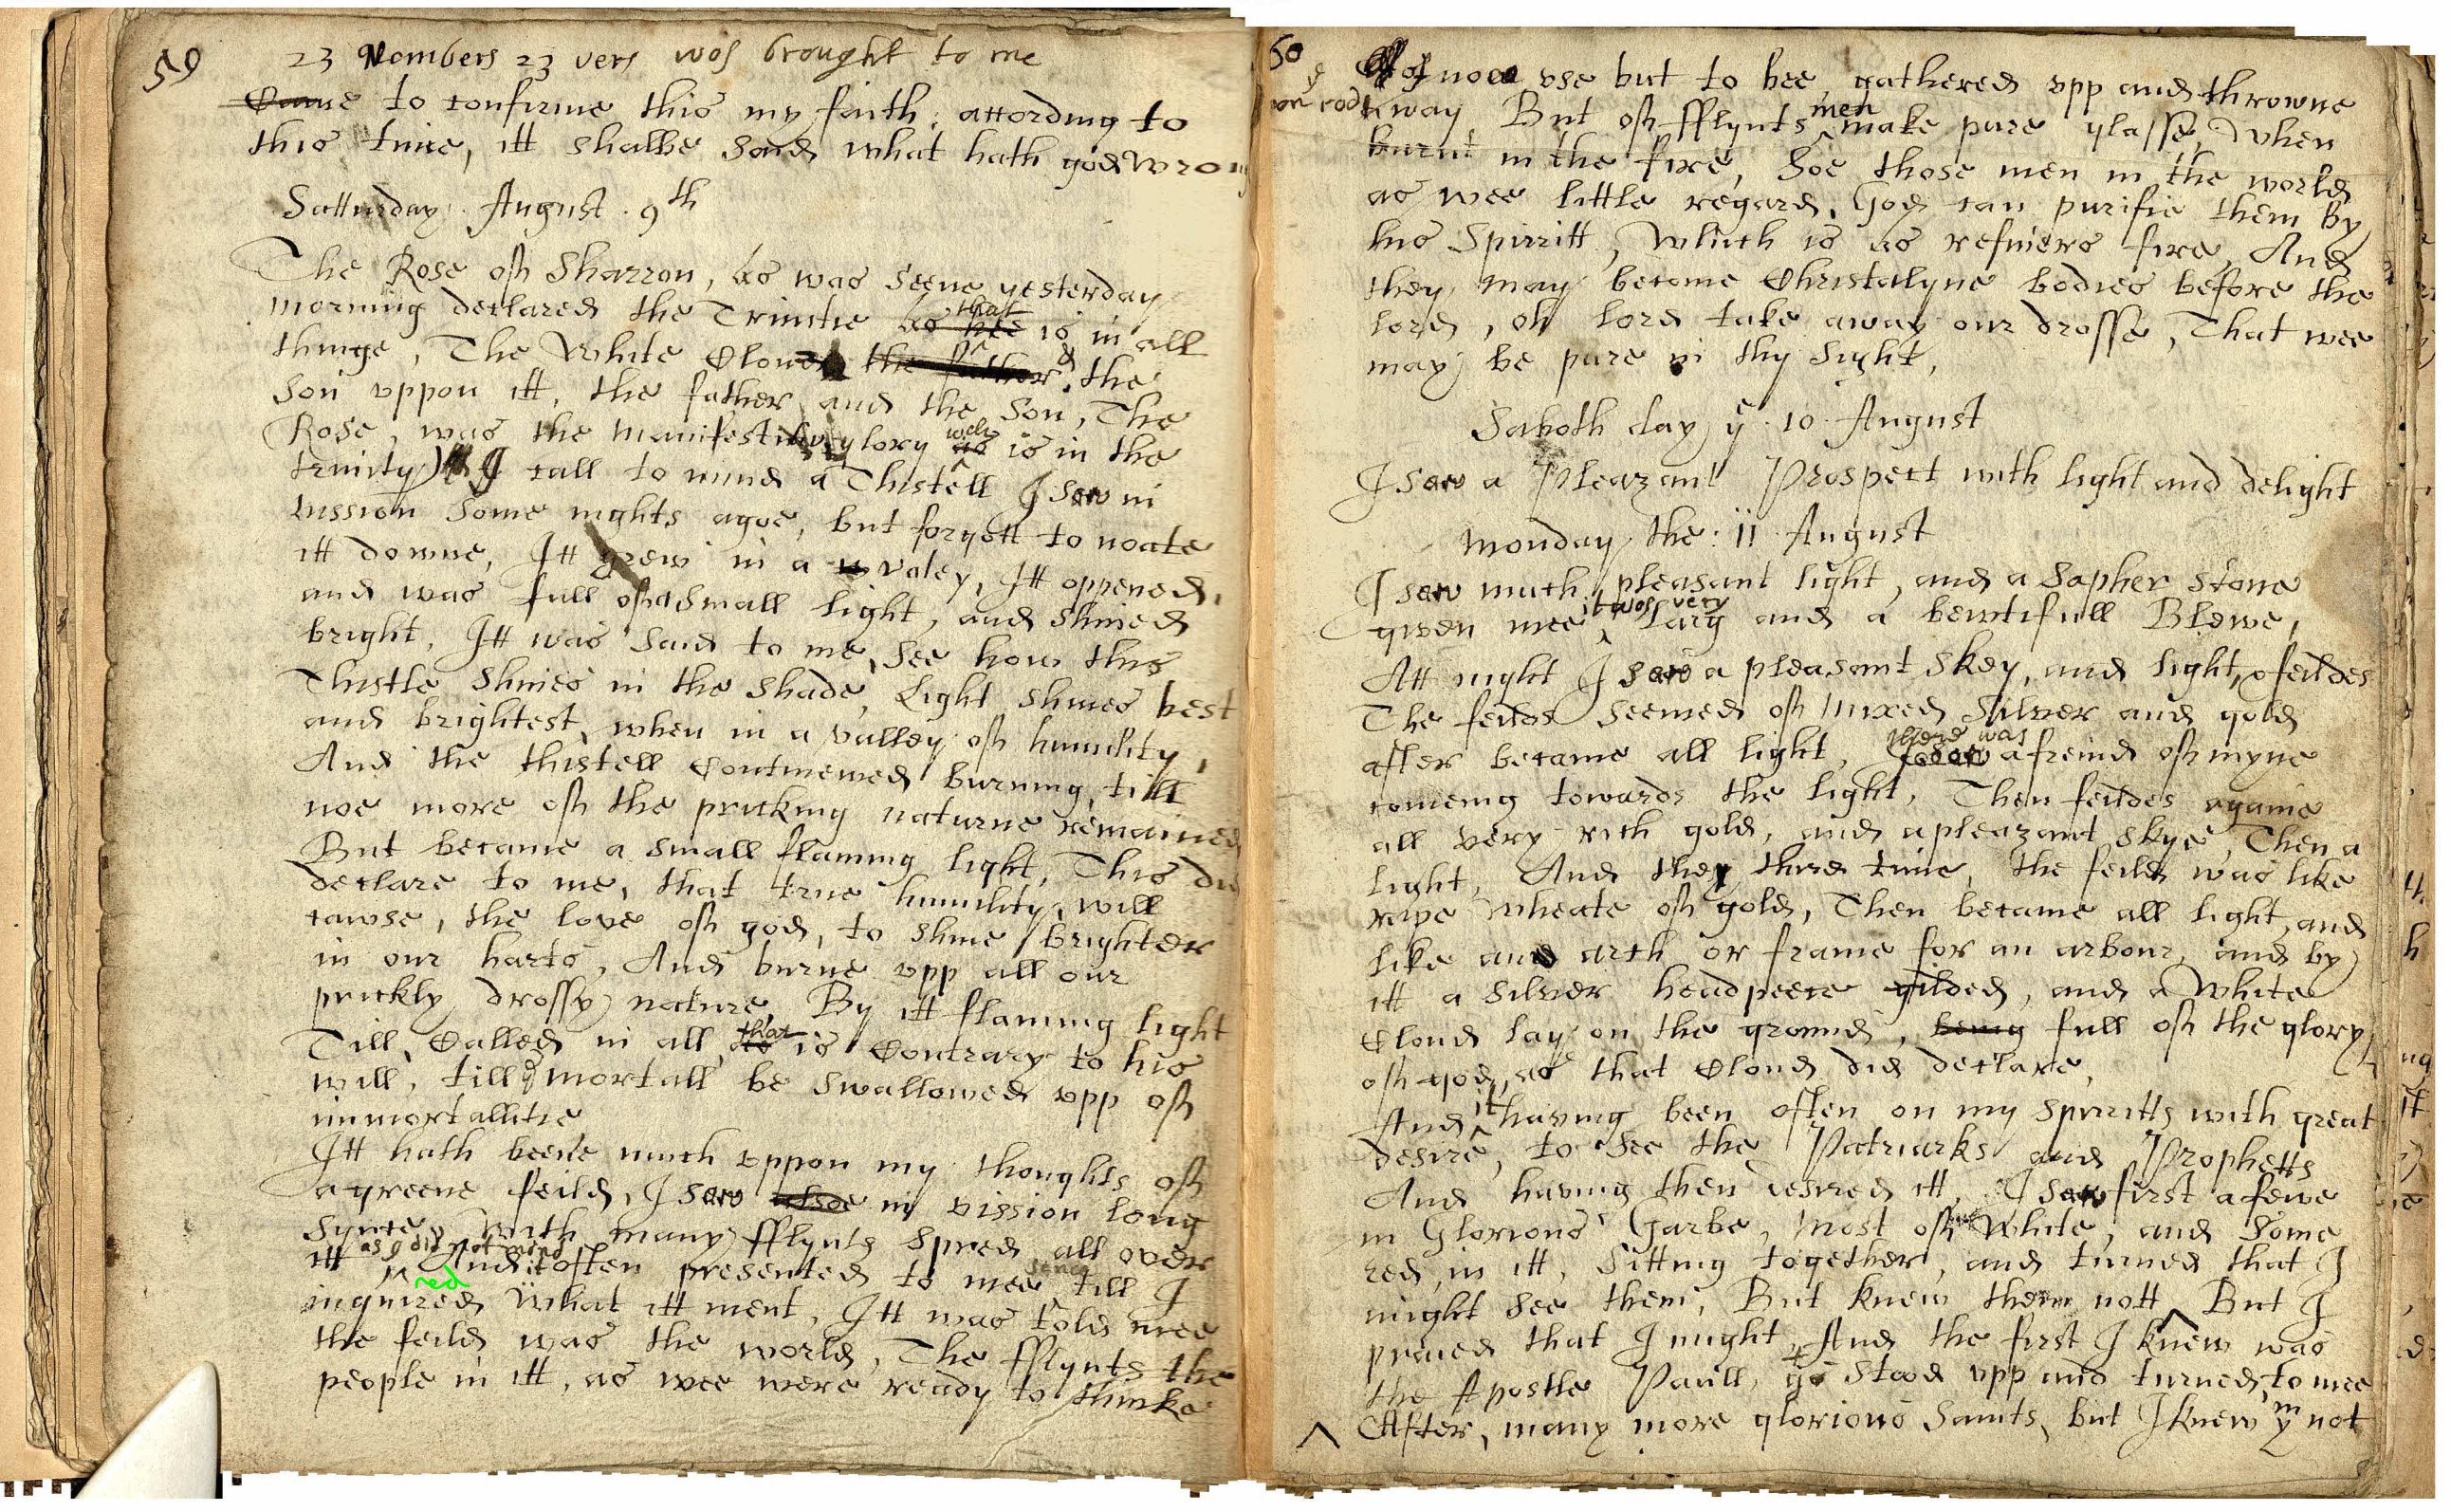 59
23 Nombers 23 vers wos brought to me
Came to confirme this my faith, according to
this time, itt shalbe said what hath god wro
Satturday. August. 9th
The Rose off Sharron, As was seene yesterday
morning declared the Trinitie As hee that is in all
things, The White Cloud the father & the
Son uppon itt, the father and the Son, The
Rose, was the manifestive glory as wch is in the
trinity) I call to mind a Thistell I saw in
vission some nights agoe, but forgett to noate
itt downe, Itt grew in a valey, Itt oppened,
and was full off a small light, and shined
bright, Itt was said to me, see how this
Thistle shines in the shade, Light shines best
and brightest, when in a valley off humility,
And the thistell Continewed burning, till
noe more off the pricking naturne remained
But became a small flaming light, This did
declare to me, that true humility, will
cawse, the love off god, to shine brighter
in our harts, And burne upp all our
prickly drossy nature, By itt flaming light
Till, Called in all, as that is Contrary to his
will, till mortall be swallowed upp off
immortallitie
Itt hath beene much uppon my thoughts off
a greene feild, I saw alsoe in vission long
synce, with many fflynts spred all over
itt as I did not mind And it often presented to mee sence, till I
inquired red What itt ment, Itt was told mee
the feild was the world, The fflynts the
people in itt, as wee were ready to thinke
60
Off noe use but to bee gathered upp and throwne
away But off fflynts men make pure glasse, when
burnt in the fire, Soe those men in the world
as wee little regard, God can purifie them By
his Spirritt, Which is as refiners fire, And
they may become Christalyne bodies before the
lord, oh lord take away our drosse, That wee
may be pure in thy sight,
Saboth day ye 10 August
I saw a Pleazant Prospect with light and delight
Monday the: 11 August
I saw much pleasant light, and a Sapher Stone
given mee it wos very larg and a bewtifull Blewe,
Att night I saw a pleasant skey, and light, & feildes
The feilds seemed off mixed silver and gold
after became all light, I saw there was a freind off myne
comeing towards the light, Then feildes againe
all very rich gold, and a pleazant skye, Then a
light, And they third time, the feild was like
ripe wheate off gold, Then became all light, and
like and arch or frame for an arbour, and by
itt a silver headpeece gilded, and a White
Cloud lay on the ground, being full off the glory
off god, as that Cloud did declare,
And it having been often on my spirritts with great
desire, to see the Patriarks and Prophetts
And having then desired itt, I saw first a fewe
in Glorious Garbe, most off White, and some
red, in itt, sitting together, and turned that I
might see them, But knew them nott But I
praied that I might, And the first I knew was
the Apostle Paull, yt stood upp and turned, to mee
After, many more glorious Saints, but I knew ym not